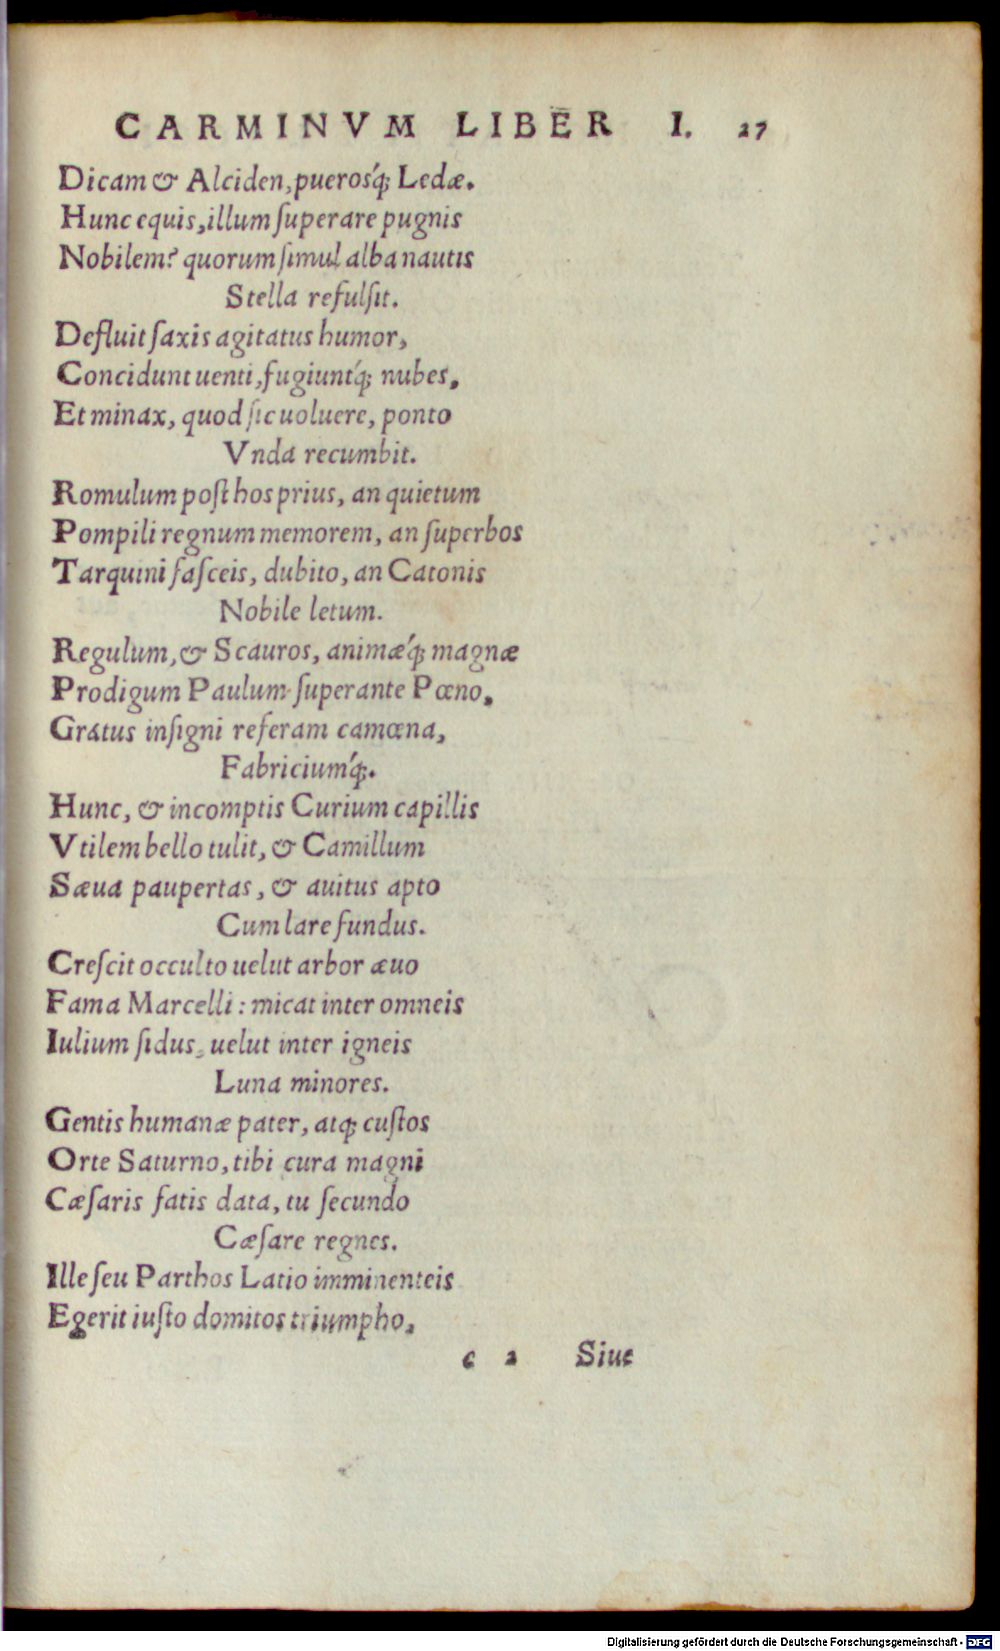 CARMINVM LIBER I. 27
Dicam & Alciden, puerosq́; Ledæ.
Hunc equis, illum ſuperare pugnis
Nobilem? quorum ſimul alba nautis
Stella refulſit.
Defluit ſaxis agitatus humor,
Concidunt uenti, fugiuntq́; nubes,
Et minax, quod ſic uoluere, ponto
Vnda recumbit.
Romulum poſt hos prius, an quietum
Pompili regnum memorem, an ſuperbos
Tarquini faſceis, dubito, an Catonis
Nobile letum.
Regulum, & Scauros, animæq́; magnæ
Prodigum Paulum ſuperante Pœno,
Gratus inſigni referam camœna,
Fabriciumq́;.
Hunc, & incomptis Curium capillis
Vtilem bello tulit, & Camillum
Sæua paupertas, & auitus apto
Cum lare fundus.
Creſcit occulto uelut arbor æuo
Fama Marcelli: micat inter omneis
Iulium ſidus, uelut inter igneis
Luna minores.
Gentis humanæ pater, atq; cuſtos
Orte Saturno, tibi cura magni
Cæſaris fatis data, tu ſecundo
Cæſare regnes.
Ille ſeu Parthos Latio imminenteis
Egerit iuſto domitos triumpho,
c 2 Siue
Digitalisierung gefördert durch die Deutsche Forschungsgemeinschaft - DFG